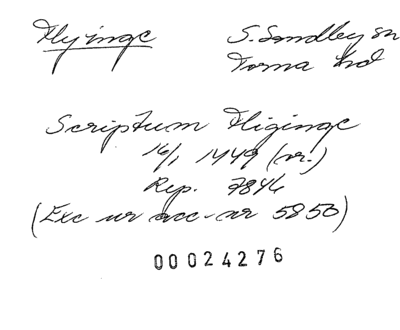 Flyinge S. Sandby sn
Torna hd
Scriptum Fliginge
16/1 1449 (or.)
Rep. 7846
(Exc ur acc-nr 5850)
00024276